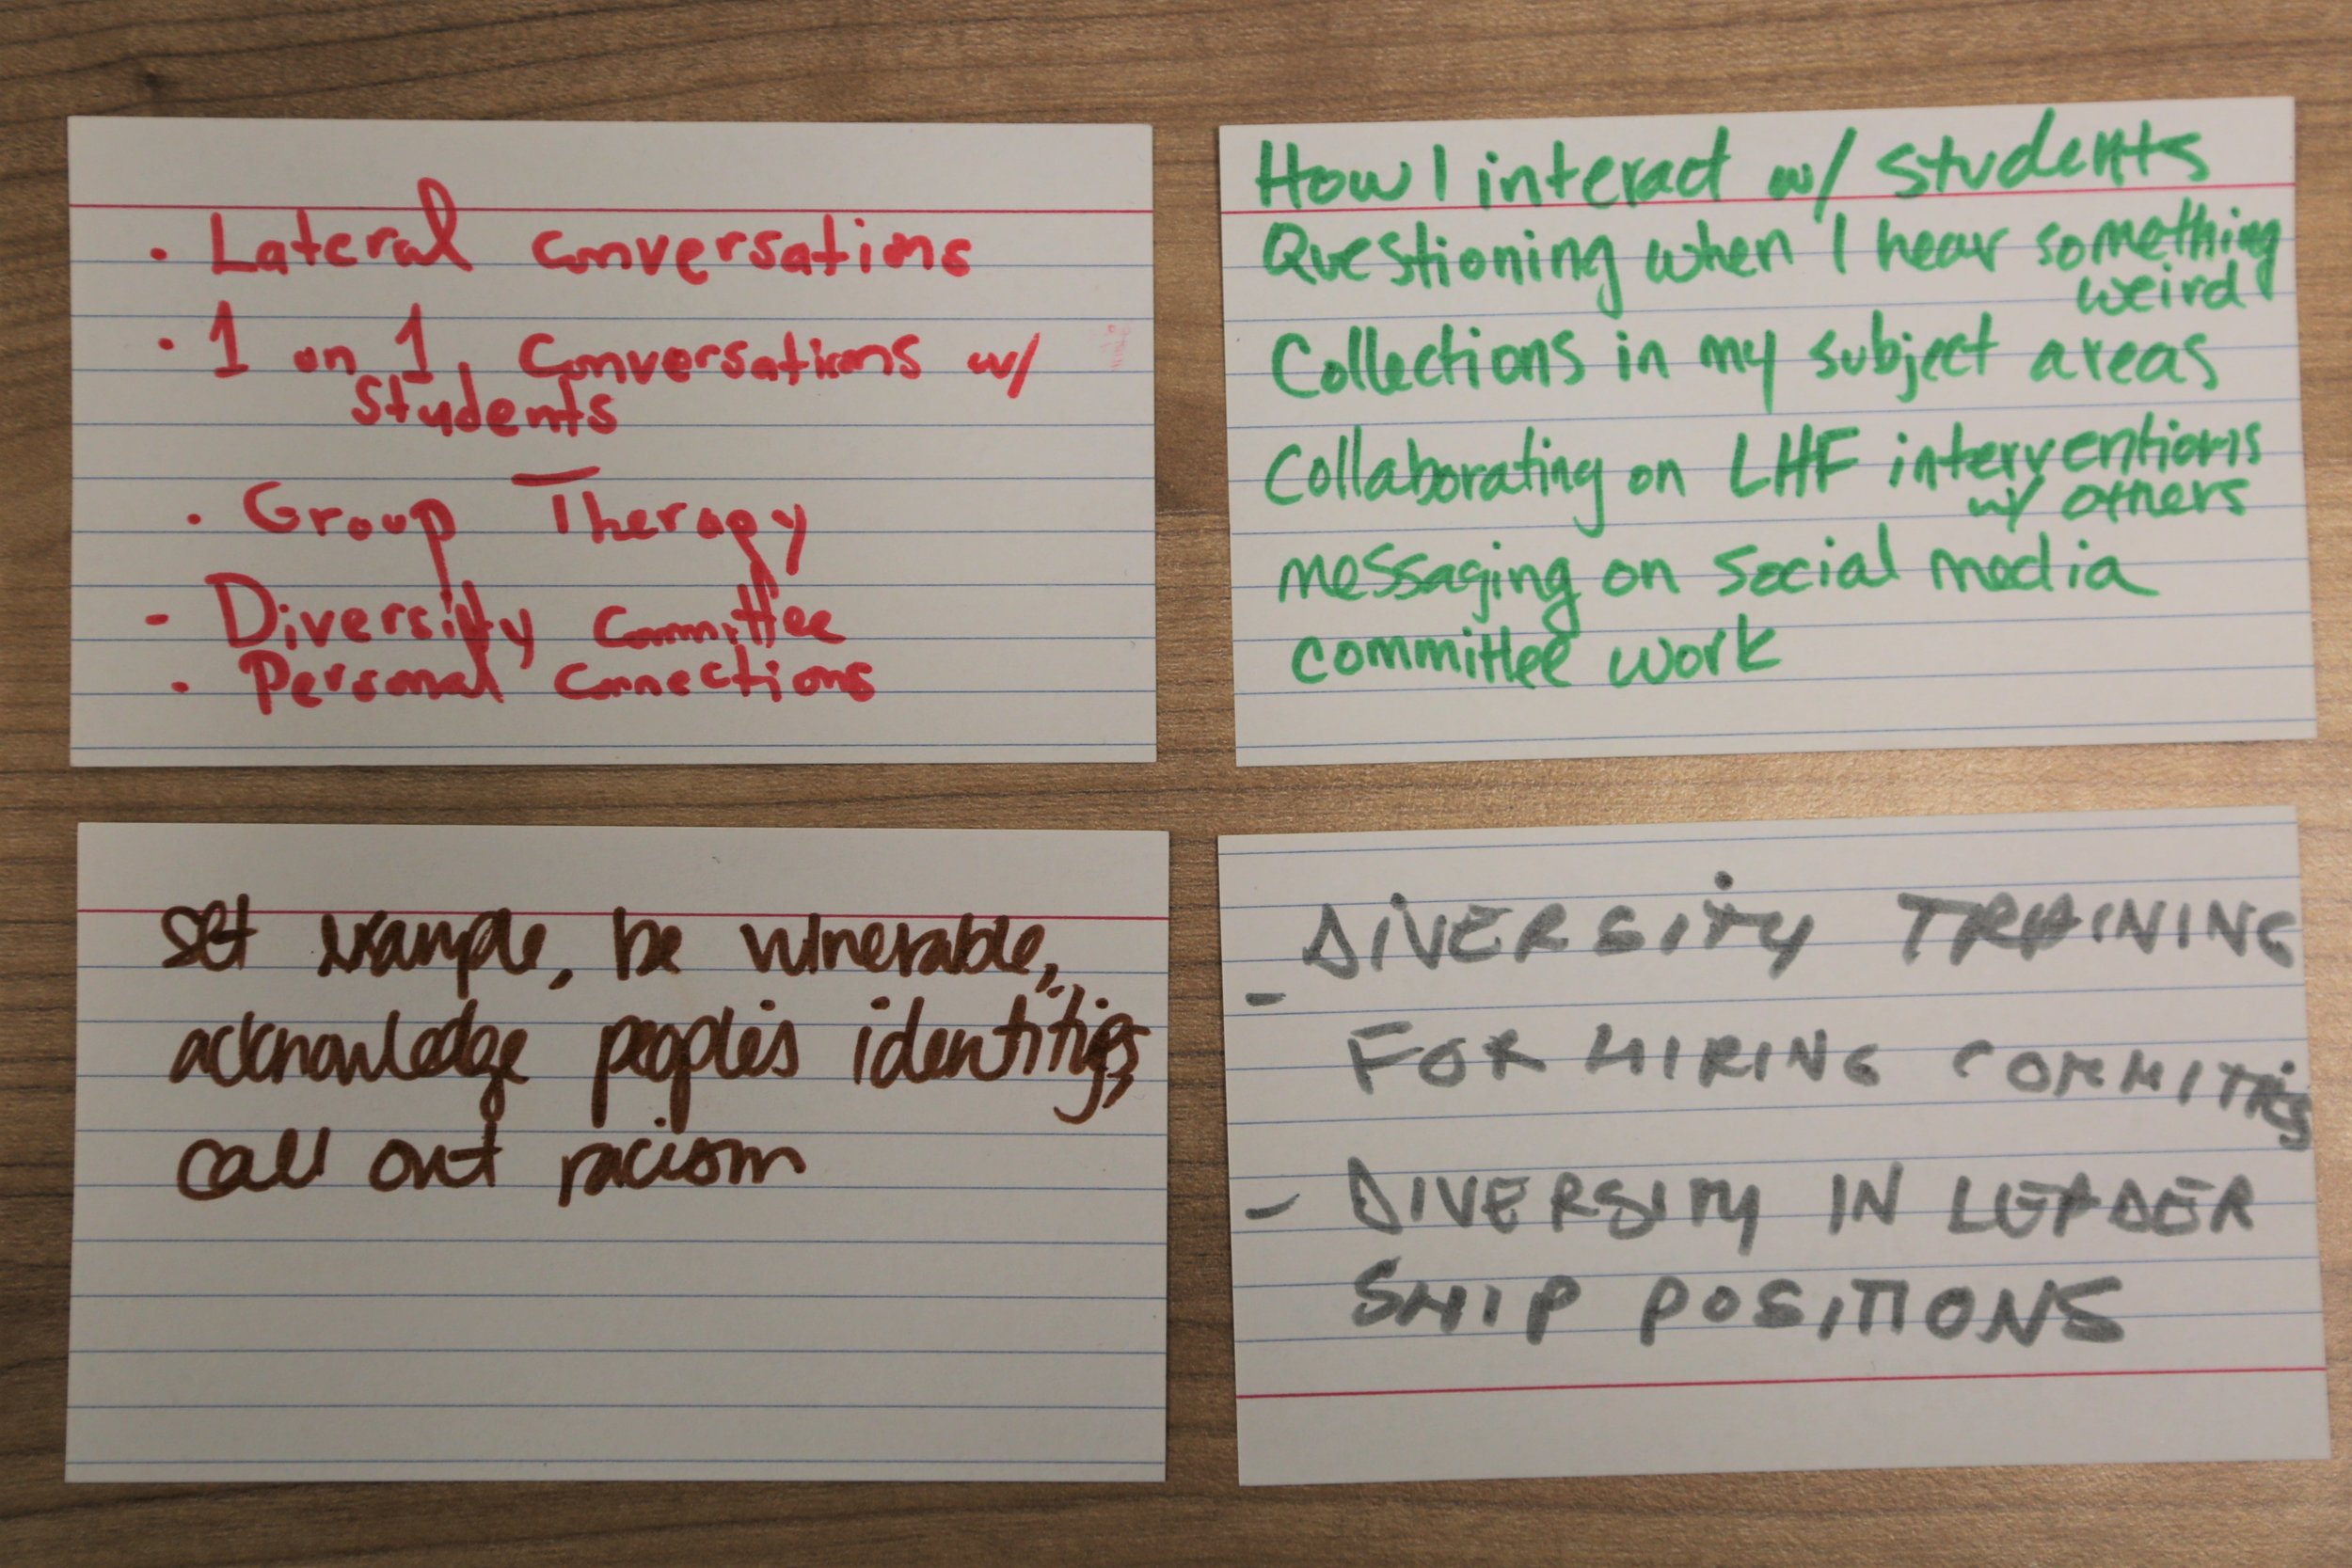 • Lateral conversations
• 1 on 1 conversations w/
students
• Group Therapy
- Diversity Committee
• Personal Connections
How I interact w/ students
Questioning when I hear something
weird
Collections in my subject areas
Collaborating on LHF interventions
w/ others
messaging on social media
committee work
set example, be vulnerable,
acknowledge people's identities,
call out racism
- DIVERSITY TRAINING
FOR HIRING COMMITTES
- DIVERSITY IN LEADER
SHIP POSITIONS